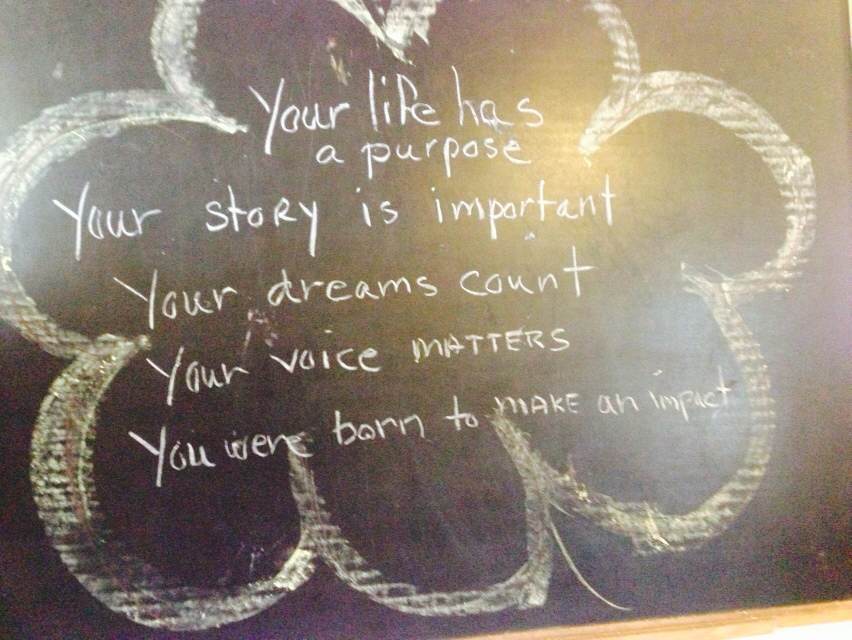 Your life has
a purpose
Your stoRy is important
Your dreams count
Your voice MATTERS
You were born to MAKE an impact